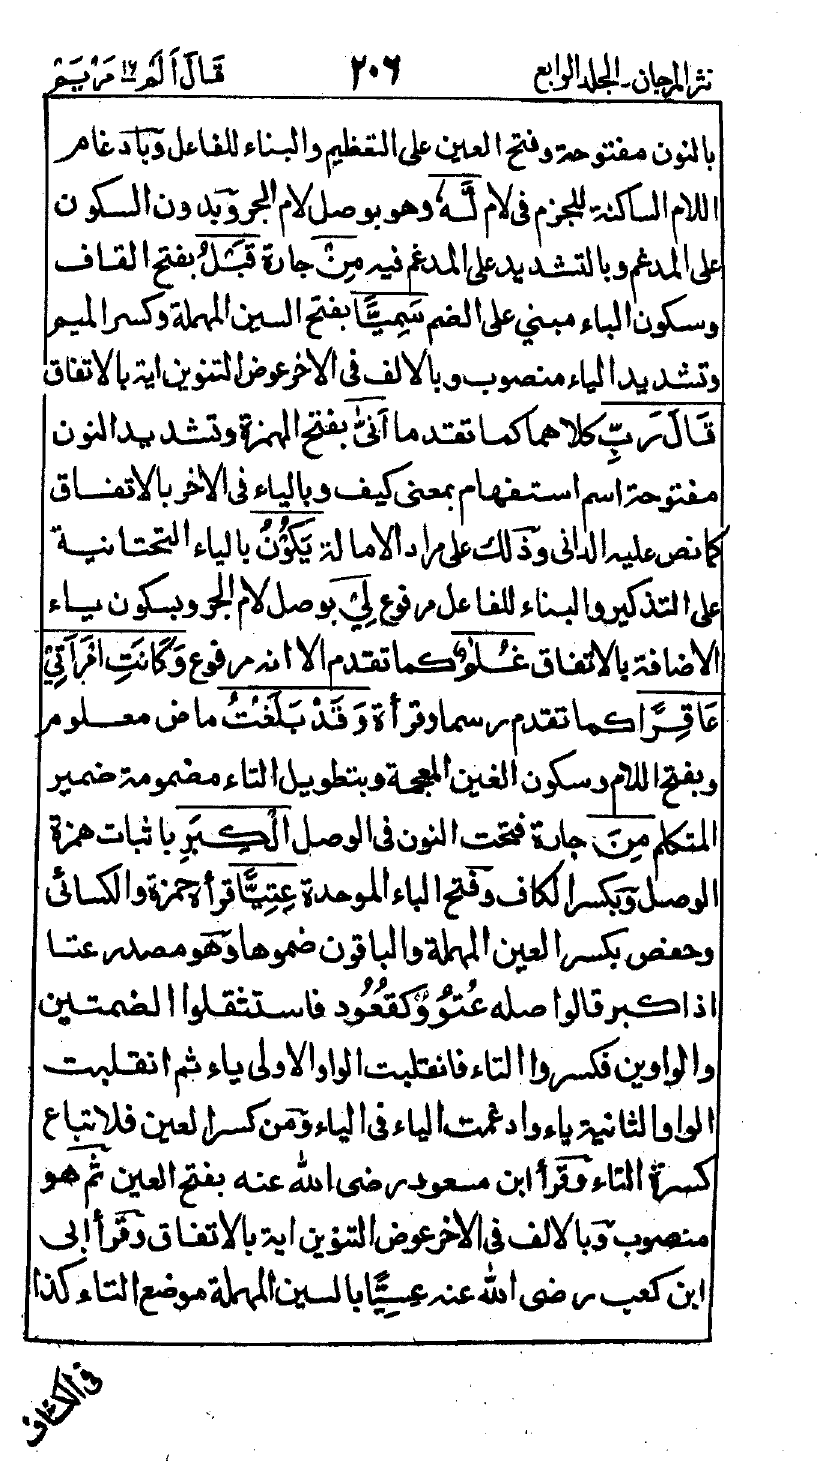 نثر المرجان ـ الجلد الرابع ٢٠٦ قَالَ أَلَمْ ١٦ مَرْيَمْ
بالنون مفتوحة وفتح العين على التعظيم والبناء للفاعل وبادغام
اللام الساكنة للجزم فى لام لَّهُ وهو بوصل لام الجر وبدون السكون
على المدغم وبالتشديد على المدغم فيه مِنْ جارة قَبْلُ بفتح القاف
وسكون الباء مبني على الضم سَمِيًّا بفتح السين المهملة وكسر الميم
وتشديد الياء منصوب وبالالف فى الاخر عوض التنوين اية بالاتفاق
قَالَ رَبِّ كلاهما كما تقدما أَنّٰى بفتح الهمزة وتشديد النون
مفتوحة اسم استفهام بمعنى كيف وبالياء فى الاخر بالاتفاق
كما نص عليه الدانى وذلك على مراد الامالة يَكُوْنُ بالياء التحتانية
على التذكير والبناء للفاعل مرفوع لِيْ بوصل لام الجر وبسكون ياء
الاضافة بالاتفاق غُلٰمٌ كما تقدم الا انه مرفوع وَكَانَتِ امْرَأَتِيْ
عَاقِرًا كما تقدم رسما وقرأة وَقَدْ بَلَغْتُ ماض معلوم
وبفتح اللام وسكون الغين المعجمة وبتطويل التاء مضمومة ضمير
المتكلم مِنَ جارة فتحت النون فى الوصل الْكِبَرِ باثبات همزة
الوصل وبكسر الكاف وفتح الباء الموحدة عِتِيًّا قرأه حمزة والكسائى
وحفص بكسر العين المهملة والباقون ضموها وهو مصدر عتا
اذا كبر قالوا صله عُتُوْوٌ كقُعُود فاستثقلوا الضمتين
والواوين فكسروا التاء فانقلبت الواو الاولى ياء ثم انقلبت
الواو الثانية ياء وادغمت الياء فى الياء ومن كسر العين فلاتباع
كسرة التاء وقرأ ابن مسعود رضى الله عنه بفتح العين ثم هو
منصوب وبالالف فى الاخر عوض التنوين اية بالاتفاق وقرأ ابى
ابن كعب رضى الله عنه عِسِيًّا بالسين المهملة موضع التاء كذا
فى الكشاف